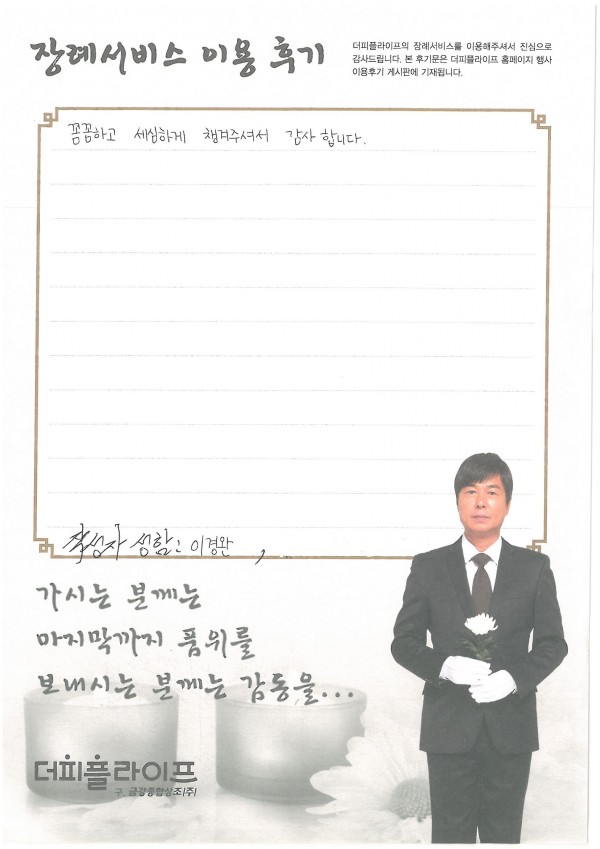 장례서비스 이용 후기
더피플라이프의 장례서비스를 이용해주셔서 진심으로
감사드립니다. 본 후기문은 더피플라이프 홈페이지 행사
이용후기 게시판에 기재됩니다.
꼼꼼하고 세심하게 챙겨주셔서 감사합니다.
작성자 성함: 이경완
가시는 분께는
마지막까지 품위를
보내시는 분께는 감동을...
더피플라이프
구. 금강종합상조(주)